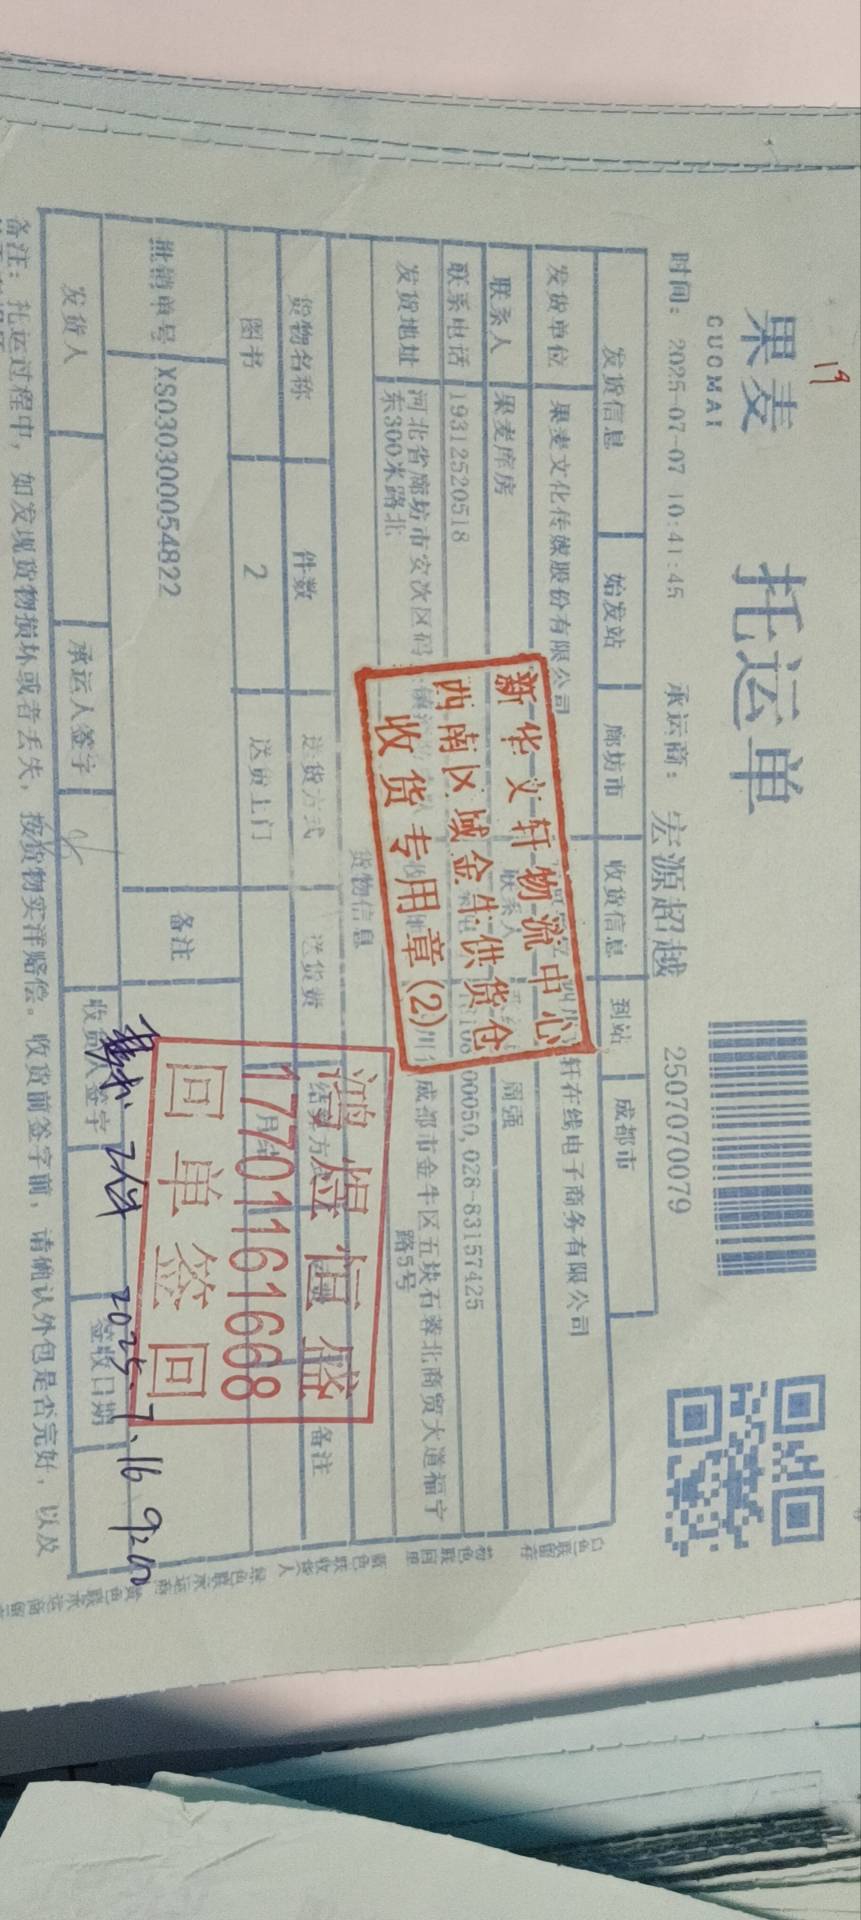 19
果麦
GUOMAI
托运单
时间: 2025-07-07 10:41:45 承运商: 宏源超越 2507070079
发货信息 始发站 廊坊市 收货信息 到站 成都市
发货单位 果麦文化传媒股份有限公司 轩在线电子商务有限公司
联系人 果麦库房 联系人 周强
联系电话 19312520518 00050,028-83157425
发货地址 河北省廊坊市安次区码 镇 成都市金牛区五块石蓉北商贸大道福宁
东300米路北 路5号
新华文轩物流中心
西南区域金牛供货仓
收货专用章(2)
货物信息
货物名称 件数 送货方式 送货费 结算方式 备注
图书 2 送货上门 月结
批销单号 XS030300054822 备注
鸿煜恒盛
17701161668
回单签回
发货人 承运人签字 收货人签字 签收日期
2件 2025.7.16
备注: 托运过程中, 如发现货物损坏或者丢失, 按货物实洋赔偿。收货前签字前, 请确认外包是否完好, 以及
白色联留存 粉色联回单 蓝色联收货人 绿色联承运商 黄色联承运商留存